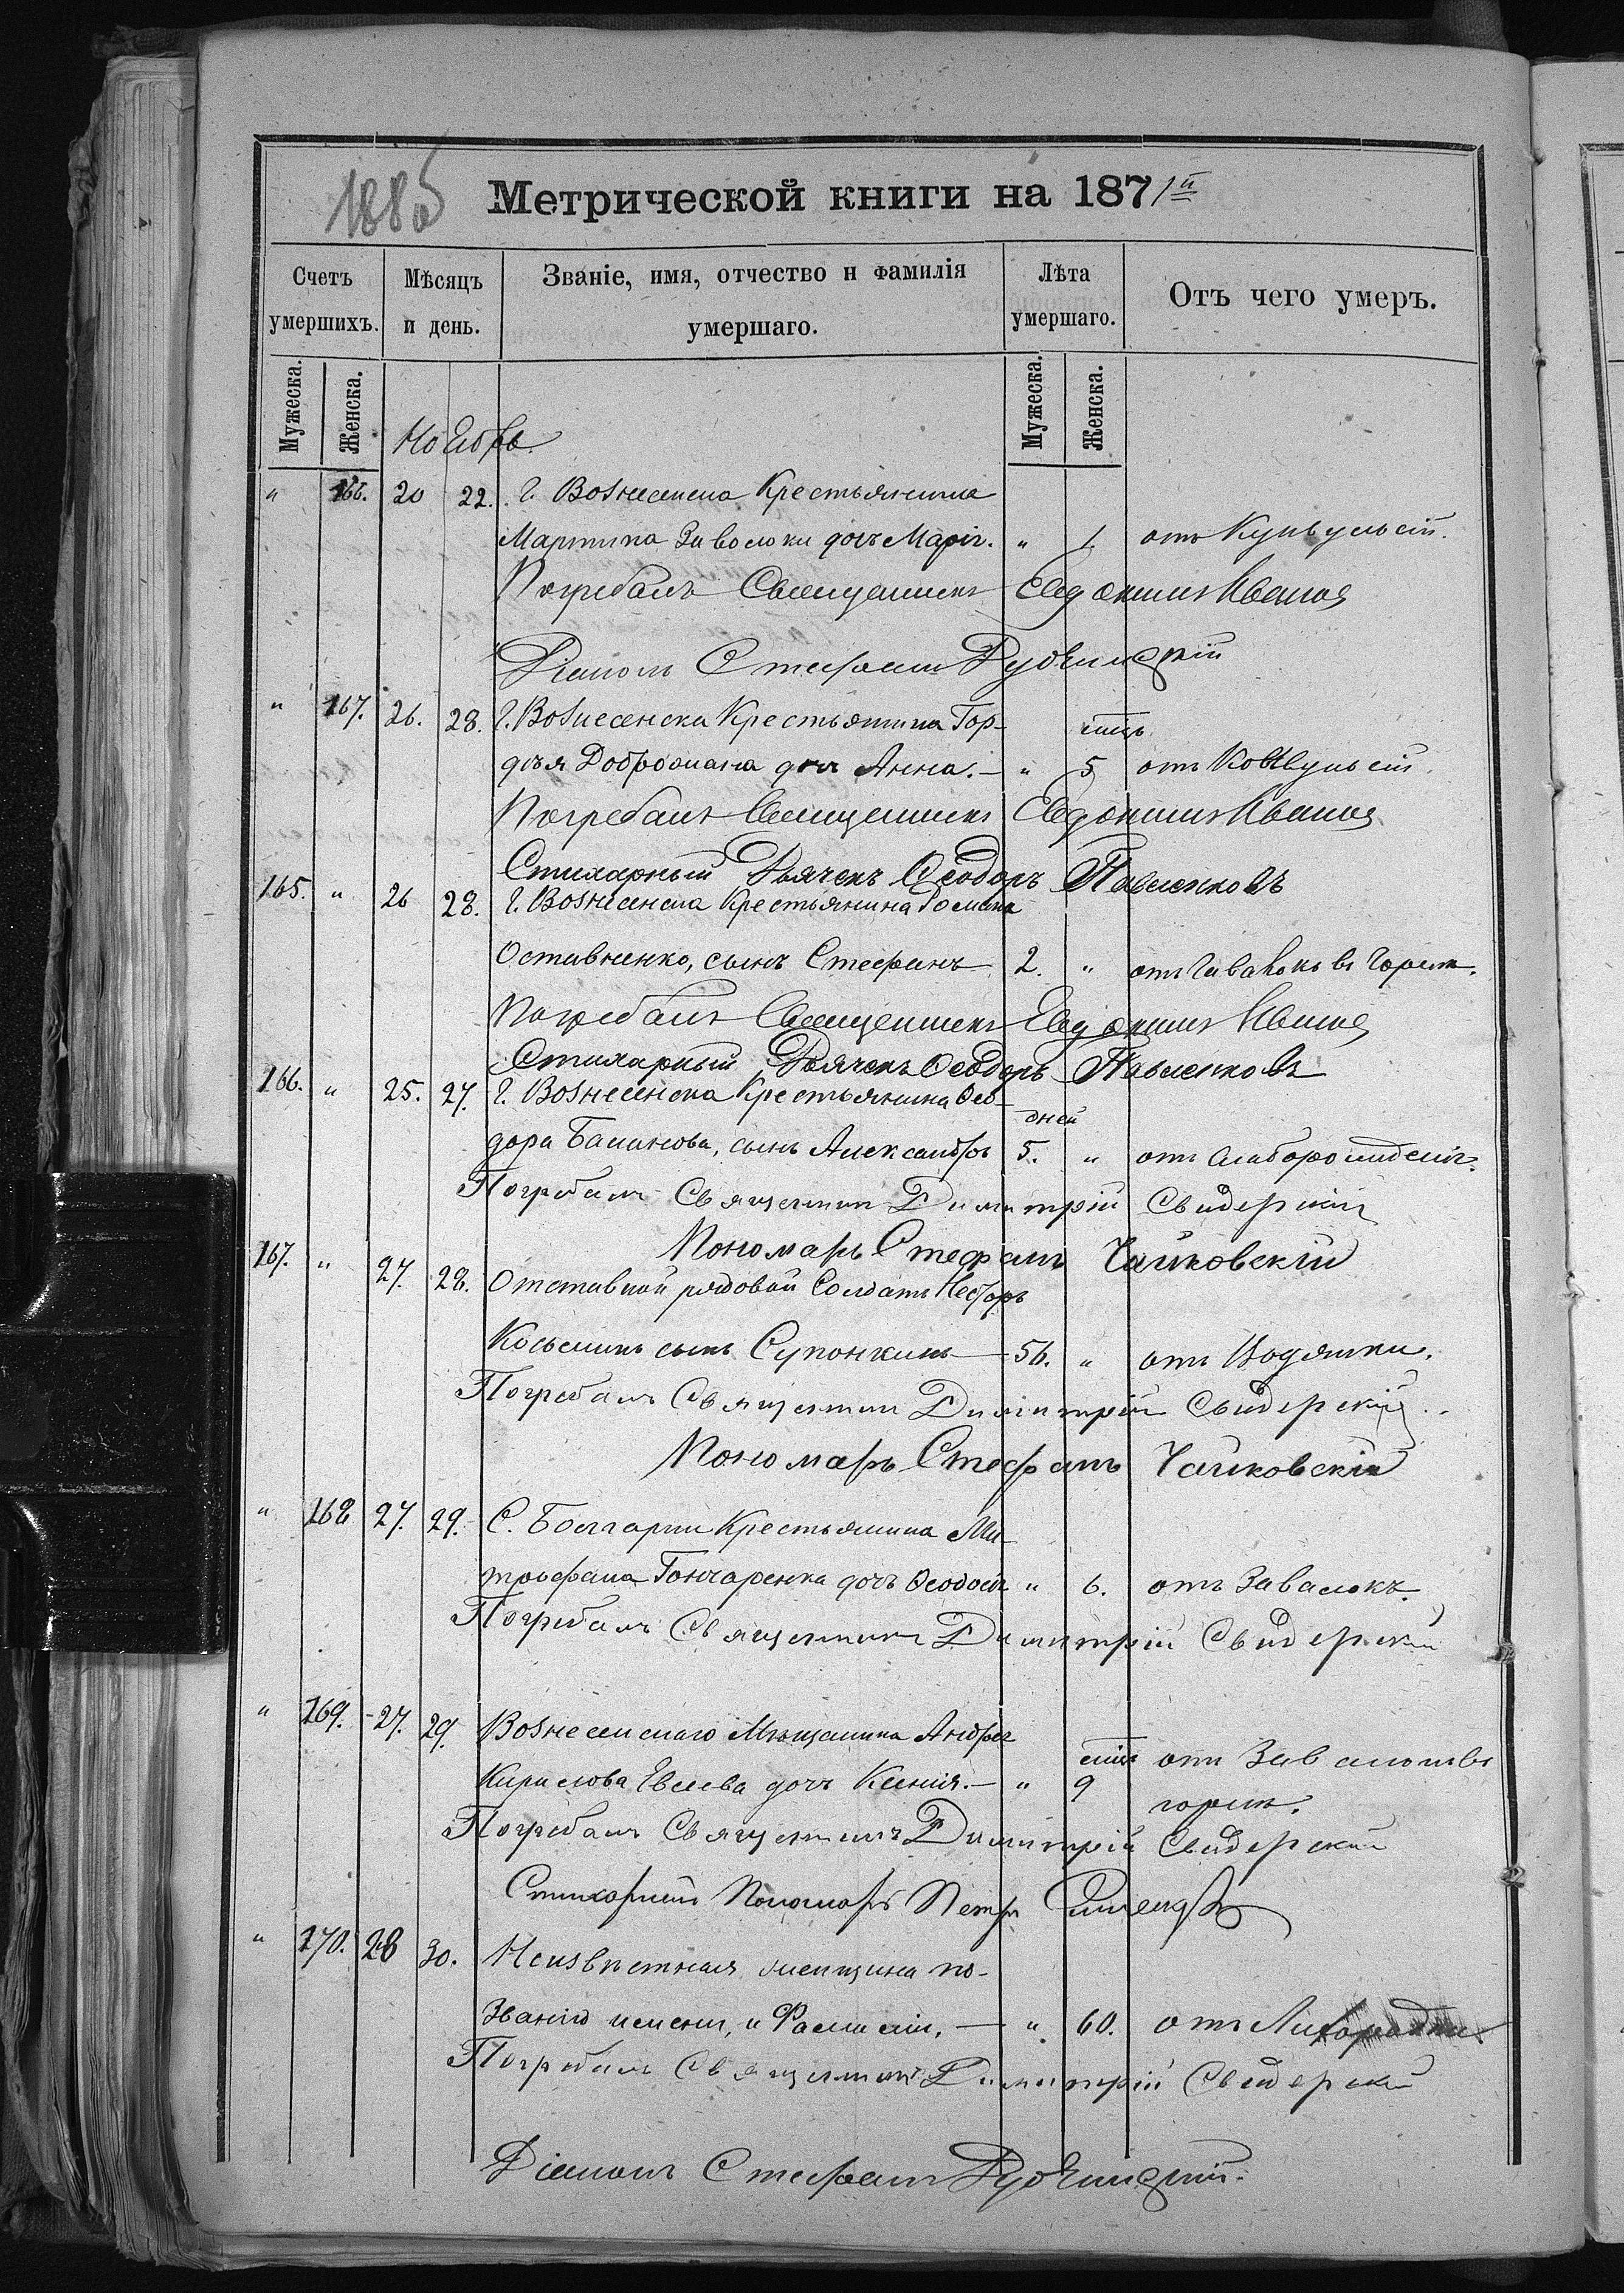 1885
Метрической книги на 1871й
Счетъ умершихъ.
Мѣсяцъ и день.
Званіе, имя, отчество и фамилія умершаго.
Лѣта умершаго.
Отъ чего умеръ.
Мужеска. Женска. Мужеска. Женска.
Ноябрь.
" 166. 20 22. г. Вознесенска Крестьянина
Мартина Заволоки дочь Марія. " 1
Погребалъ Священникъ Евдокимъ Иванов
Діаконъ Стефанъ
" 167. 26. 28. г. Вознесенска Крестьянина Гор-
дѣя дочь Анна. — " 5 отъ Конвульсій.
Погребалъ Священникъ Евдокимъ Иванов
Стихарный Дьячекъ Ѳеодоръ Павленковъ
165. " 26 28. г. Вознесенска Крестьянина Романа
Оставненко, сынъ Стефанъ 2. " отъ
Погребалъ Священникъ Евдокимъ Иванов
Стихарный Дьячекъ Ѳеодоръ Павленковъ
166. " 25. 27. г. Вознесенска Крестьянина Ѳео- дней
дора Баланова, сынъ Александръ 5. " отъ
Погребалъ Священникъ Димитрій Свидерскій
Пономарь Стефанъ Чайковскій
167. " 27. 28. Отставной рядовой Солдатъ Несторъ
Косьминъ сынъ Супонкинъ — 56. " отъ Водянки.
Погребалъ Священникъ Димитрій Свидерскій
Пономарь Стефанъ Чайковскій
" 168 27. 29. С. Болгарки Крестьянина Ми-
трофана Гончаренка дочь Ѳеодосія " 6. отъ Завалокъ.
Погребалъ Священникъ Димитрій Свидерскій
" 169. 27. 29. Вознесенскаго Мѣщанина Андрея
Кирилова Евсеева дочь Ксенія. — " 9 отъ
горлѣ.
Погребалъ Священникъ Димитрій Свидерскій
Стихарный Пономарь Петръ
" 170. 28 30. Неизвѣстная женщина по
званію имени, и Фамиліи, — " 60. отъ Лихорадки.
Погребалъ Священникъ Димитрій Свидерскій
Діаконъ Стефанъ